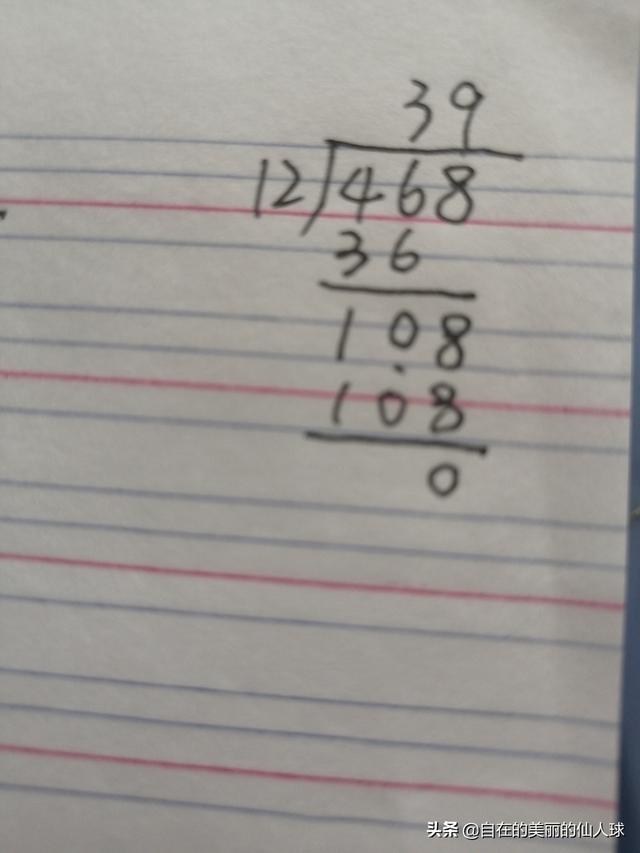 39
12)468
36
108
108
0
头条 @自在的美丽的仙人球